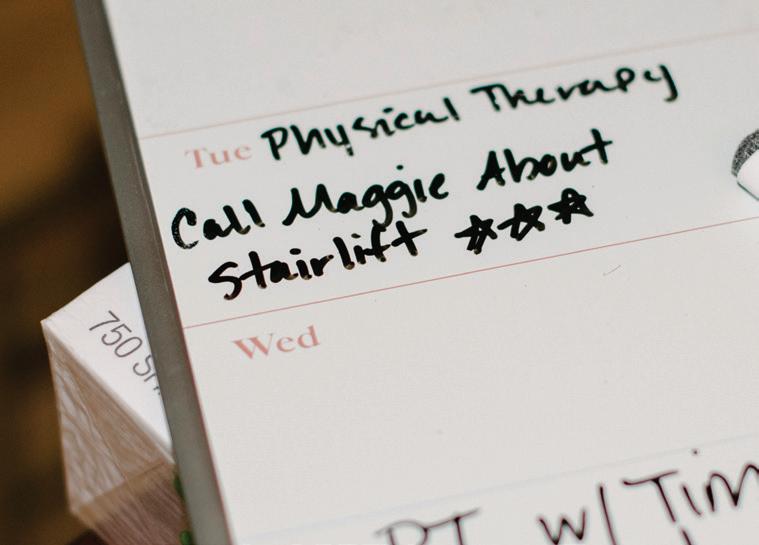 Tue Physical Therapy
Call Maggie About
Stairlift ☆☆☆
Wed
750
PT w/ Tim